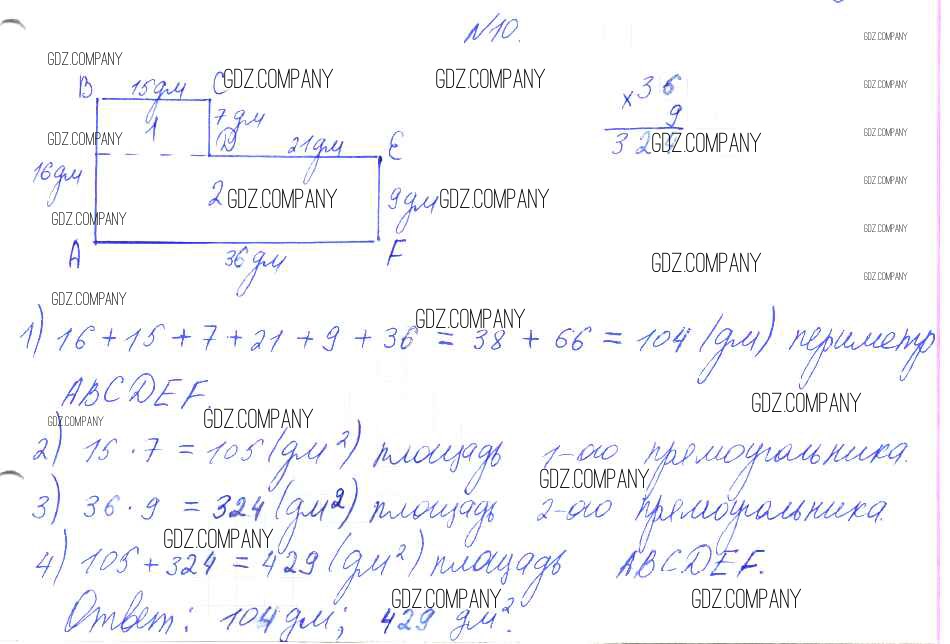 №10.
GDZ.COMPANY
B 15дм C GDZ.COMPANY GDZ.COMPANY ×36 GDZ.COMPANY
1 7дм 9 GDZ.COMPANY
GDZ.COMPANY D 21дм E 324 GDZ.COMPANY GDZ.COMPANY
16дм 2 GDZ.COMPANY 9дм GDZ.COMPANY GDZ.COMPANY
GDZ.COMPANY GDZ.COMPANY
A 36дм F GDZ.COMPANY GDZ.COMPANY
GDZ.COMPANY GDZ.COMPANY
1) 16+15+7+21+9+36 = 38+66 = 104 (дм) периметр
ABCDEF. GDZ.COMPANY
GDZ.COMPANY GDZ.COMPANY
2) 15·7 = 105 (дм²) площадь 1-ого прямоугольника.
GDZ.COMPANY
3) 36·9 = 324 (дм²) площадь 2-ого прямоугольника.
GDZ.COMPANY
4) 105+324 = 429 (дм²) площадь ABCDEF.
GDZ.COMPANY GDZ.COMPANY
Ответ: 104 дм; 429 дм².